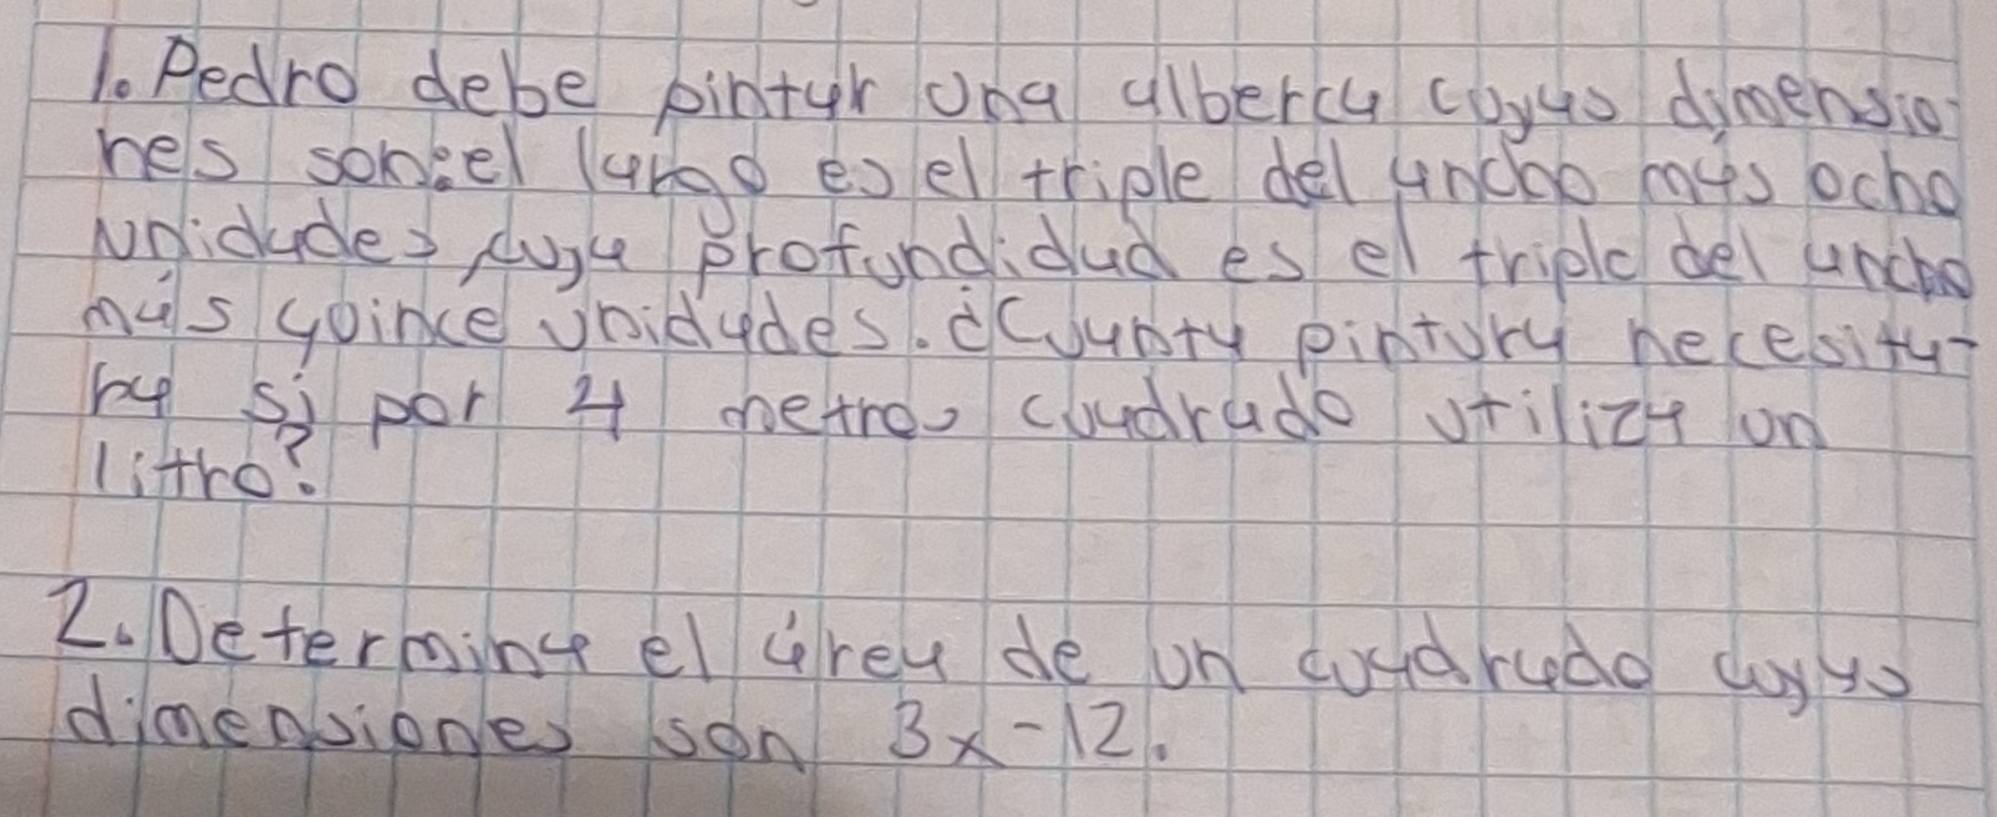 1. Pedro debe pintar una alberca cuyas dimensio-
nes son: el largo es el triple del ancho más ocho
unidades, cuya profundidad es el triple del ancho
más quince unidades. ¿Cuánta pintura necesita-
ra si por 4 metros cuadrado utiliza un
litro?
2. Determina el área de un cuadrado cuyas
dimensiones son 3x-12.